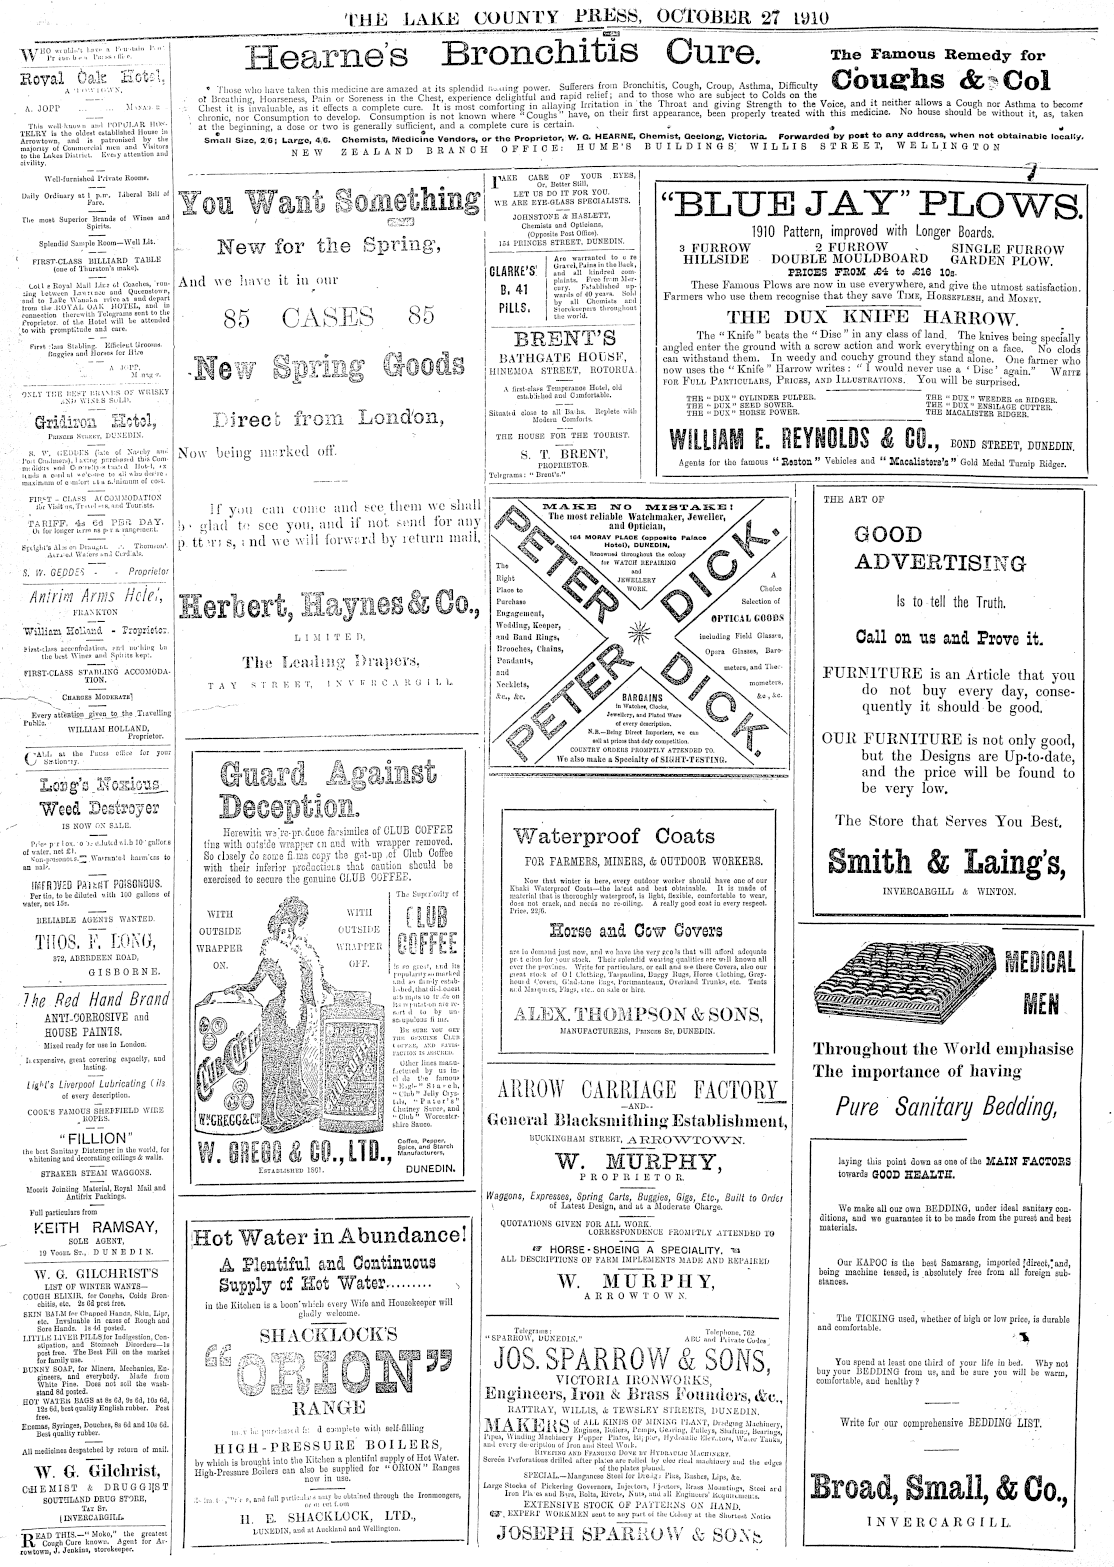 THE LAKE COUNTY PRESS, OCTOBER 27 1910
WHO wouldn't have a Fountain Pen?
Royal Oak Hotel,
A. JOPP
This well known and POPULAR HOS-
TELRY is the oldest established House in
Arrowtown, and is patronised by the
majority of Commercial men and Visitors
to the Lakes District. Every attention and
civility.
Well-furnished Private Rooms.
Daily Ordinary at 1 p.m. Liberal Bill of
Fare.
The most Superior Brands of Wines and
Spirits.
Splendid Sample Room—Well Lit.
FIRST-CLASS BILLIARD TABLE
(one of Thurston's make).
Cobb's Royal Mail Line of Coaches, run-
ning between Lawrence and Queenstown,
and to Lake Wanaka arrive at and depart
from the ROYAL OAK HOTEL, and in
connection therewith Telegrams sent to the
Proprietor of the Hotel will be attended
to with promptitude and care.
First class Stabling. Efficient Grooms.
Buggies and Horses for Hire
A JOPP.
ONLY THE BEST BRANDS OF WHISKY
AND WINES SOLD.
Gridiron Hotel,
PRINCES STREET, DUNEDIN.
S. W. GEDDES (late of Naseby and
Port Chalmers), having purchased this Com-
maximum of comfort at a minimum of cost.
FIRST-CLASS ACCOMMODATION
for Visitors, Travellers, and Tourists.
TARIFF, 4s 6d PER DAY.
Or for longer terms per arrangement.
Speight's Ales on Draught. Thomson's
Aerated Waters and Cordials.
S. W. GEDDES - - Proprietor
Antrim Arms Hotel,
FRANKTON
William Holland - Proprietor.
First-class accomodation, and nothing but
the best Wines and Spirits kept.
FIRST-CLASS STABLING ACCOMODA-
TION.
CHARGES MODERATE!
Every attention given to the Travelling
Public.
WILLIAM HOLLAND,
Proprietor.
CALL at the Press office for your
Stationery.
Long's Noxious
Weed Destroyer
IS NOW ON SALE.
of water, net £1.
Non-poisonous. Warranted harmless to
animals.
IMPROVED PATENT POISONOUS.
Per tin, to be diluted with 100 gallons of
water, net 15s.
RELIABLE AGENTS WANTED.
THOS. F. LONG,
372, ABERDEEN ROAD,
GISBORNE.
The Red Hand Brand
ANTI-CORROSIVE and
HOUSE PAINTS.
Mixed ready for use in London.
Inexpensive, great covering capacity, and
lasting.
Light's Liverpool Lubricating Oils
of every description.
COOK'S FAMOUS SHEFFIELD WIRE
ROPES.
"FILLION"
the best Sanitary Distemper in the world, for
whitening and decorating ceilings & walls.
STRAKER STEAM WAGGONS.
Moorit Jointing Material, Royal Mail and
Antifrix Packings.
Full particulars from
KEITH RAMSAY,
SOLE AGENT,
19 VOGEL ST., DUNEDIN.
W. G. GILCHRIST'S
LIST OF WINTER WANTS—
COUGH ELIXIR, for Coughs, Colds Bron-
chitis, etc. 2s 6d post free.
SKIN BALM for Chapped Hands, Skin, Lips,
etc. Invaluable in cases of Rough and
Sore Hands. 1s 4d posted.
LITTLE LIVER PILLS, for Indigestion, Con-
stipation, and Stomach Disorders—1s
post free. The Best Pill on the market
for family use.
BUNNY SOAP, for Miners, Mechanics, En-
gineers, and everybody. Made from
White Pine. Does not soil the wash-
stand 8d posted.
HOT WATER BAGS at 8s 6d, 9s 6d, 10s 6d,
12s 6d, best quality English rubber. Post
free.
Enemas, Syringes, Douches, 8s 6d and 10s 6d.
Best quality rubber.
All medicines despatched by return of mail.
W. G. Gilchrist,
CHEMIST & DRUGGIST
SOUTHLAND DRUG STORE,
TAY ST.
INVERCARGILL.
READ THIS.—"Moko," the greatest
Cough Cure known. Agent for Ar-
rowtown, J. Jenkins, storekeeper.
Hearne's Bronchitis Cure.
The Famous Remedy for
Coughs & Col
Those who have taken this medicine are amazed at its splendid healing power. Sufferers from Bronchitis, Cough, Croup, Asthma, Difficulty
of Breathing, Hoarseness, Pain or Soreness in the Chest, experience delightful and rapid relief; and to those who are subject to Colds on the
Chest it is invaluable, as it effects a complete cure. It is most comforting in allaying Irritation in the Throat and giving Strength to the Voice, and it neither allows a Cough nor Asthma to become
chronic, nor Consumption to develop. Consumption is not known where "Coughs" have, on their first appearance, been properly treated with this medicine. No house should be without it, as, taken
at the beginning, a dose or two is generally sufficient, and a complete cure is certain.
Small Size, 2/6; Large, 4/6. Chemists, Medicine Vendors, or the Proprietor, W. G. HEARNE, Chemist, Geelong, Victoria. Forwarded by post to any address, when not obtainable locally.
NEW ZEALAND BRANCH OFFICE: HUME'S BUILDINGS WILLIS STREET, WELLINGTON
You Want Something
New for the Spring,
And we have it in our
85 CASES 85
New Spring Goods
Direct from London,
Now being marked off.
If you can come and see them we shall
be glad to see you, and if not send for any
patterns, and we will forward by return mail.
Herbert, Haynes & Co.,
LIMITED,
The Leading Drapers,
TAY STREET, INVERCARGILL
Guard Against
Deception.
Herewith we re-produce facsimiles of CLUB COFFEE
tins with outside wrapper on and with wrapper removed.
So closely do some firms copy the get-up of Club Coffee
with their inferior productions that caution should be
exercised to secure the genuine CLUB COFFEE.
WITH
OUTSIDE
WRAPPER
ON.
WITH
OUTSIDE
WRAPPER
OFF.
The Superiority of
CLUB
COFFEE
is so great, and its
popularity so marked
and so firmly estab-
lished, that dishonest
attempts to trade on
its reputation are re-
sorted to by un-
scrupulous firms.
BE SURE YOU GET
THE GENUINE CLUB
COFFEE, AND SATIS-
FACTION IS ASSURED.
Other lines manu-
factured by us in-
clude the famous
"Eagle" Starch,
"Club" Jelly Crys-
tals, "Pater's"
Chutney Sauce, and
"Club" Worcester-
shire Sauce.
CLUB COFFEE
WM. GREGG & CO
W. GREGG & CO., LTD.,
ESTABLISHED 1861.
Coffee, Pepper,
Spice, and Starch
Manufacturers,
DUNEDIN.
Hot Water in Abundance!
A Plentiful and Continuous
Supply of Hot Water.........
in the Kitchen is a boon which every Wife and Housekeeper will
gladly welcome.
SHACKLOCK'S
"ORION"
RANGE
may be purchased fitted complete with self-filling
HIGH-PRESSURE BOILERS,
by which is brought into the Kitchen a plentiful supply of Hot Water.
High-Pressure Boilers can also be supplied for "ORION" Ranges
now in use.
and full particulars may be obtained through the Ironmongers,
or direct from
H. E. SHACKLOCK, LTD.,
DUNEDIN, and at Auckland and Wellington.
TAKE CARE OF YOUR EYES,
Or, Better Still,
LET US DO IT FOR YOU.
WE ARE EYE-GLASS SPECIALISTS.
JOHNSTONE & HASLETT,
Chemists and Opticians,
(Opposite Post Office).
154 PRINCES STREET, DUNEDIN.
CLARKE'S
B. 41
PILLS.
Are warranted to cure
Gravel, Pains in the Back,
and all kindred com-
plaints. Free from Mer-
cury. Established up-
wards of 40 years. Sold
by all Chemists and
Storekeepers throughout
the world.
BRENT'S
BATHGATE HOUSE,
HINEMOA STREET, ROTORUA.
A first-class Temperance Hotel, old
established and Comfortable.
Situated close to all Baths. Replete with
Modern Comforts.
THE HOUSE FOR THE TOURIST.
S. T. BRENT,
PROPRIETOR.
Telegrams: "Brent's."
"BLUE JAY" PLOWS.
1910 Pattern, improved with Longer Boards.
3 FURROW HILLSIDE
2 FURROW DOUBLE MOULDBOARD
SINGLE FURROW GARDEN PLOW.
PRICES FROM £4 to £16 10s.
These Famous Plows are now in use everywhere, and give the utmost satisfaction.
Farmers who use them recognise that they save TIME, HORSEFLESH, and MONEY.
THE DUX KNIFE HARROW.
The "Knife" beats the "Disc" in any class of land. The knives being specially
angled enter the ground with a screw action and work everything on a face. No clods
can withstand them. In weedy and couchy ground they stand alone. One farmer who
now uses the "Knife" Harrow writes: "I would never use a 'Disc' again." WRITE
FOR FULL PARTICULARS, PRICES, AND ILLUSTRATIONS. You will be surprised.
THE "DUX" CYLINDER PULPER.
THE "DUX" SEED SOWER.
THE "DUX" HORSE POWER.
THE "DUX" WEEDER OR RIDGER.
THE "DUX" ENSILAGE CUTTER.
THE MACALISTER RIDGER.
WILLIAM E. REYNOLDS & CO., BOND STREET, DUNEDIN.
Agents for the famous "Reston" Vehicles and "Macalister's" Gold Medal Turnip Ridger.
MAKE NO MISTAKE!
The most reliable Watchmaker, Jeweller,
and Optician,
PETER DICK.
164 MORAY PLACE (opposite Palace
Hotel), DUNEDIN,
Renowned throughout the colony
for WATCH REPAIRING
and
JEWELLERY
WORK.
The
Right
Place to
Purchase
Engagement,
Wedding, Keeper,
and Band Rings,
Brooches, Chains,
Pendants,
and
Necklets,
&c., &c.
A
Choice
Selection of
OPTICAL GOODS
including Field Glasses,
Opera Glasses, Baro-
meters, and Ther-
mometers,
&c., &c.
PETER DICK.
BARGAINS
in Watches, Clocks,
Jewellery, and Plated Ware
of every description.
N.B.—Being Direct Importers, we can
sell at prices that defy competition.
COUNTRY ORDERS PROMPTLY ATTENDED TO.
We also make a Specialty of SIGHT-TESTING.
Waterproof Coats
FOR FARMERS, MINERS, & OUTDOOR WORKERS.
Now that winter is here, every outdoor worker should have one of our
Khaki Waterproof Coats—the latest and best obtainable. It is made of
material that is thoroughly waterproof, is light, flexible, comfortable to wear,
does not crack, and needs no re-oiling. A really good coat in every respect.
Price, 22/6.
Horse and Cow Covers
are in demand just now, and we have the very goods that will afford adequate
protection for your stock. Their splendid wearing qualities are well known all
over the province. Write for particulars, or call and see these Covers, also our
great stock of Oil Clothing, Tarpaulins, Buggy Rugs, Horse Clothing, Grey-
hound Covers, Gladstone Bags, Portmanteaux, Overland Trunks, etc. Tents
and Marquees, Flags, etc., on sale or hire.
ALEX. THOMPSON & SONS,
MANUFACTURERS, PRINCES ST. DUNEDIN.
ARROW CARRIAGE FACTORY
—AND—
General Blacksmithing Establishment,
BUCKINGHAM STREET, ARROWTOWN.
W. MURPHY,
PROPRIETOR.
Waggons, Expresses, Spring Carts, Buggies, Gigs, Etc., Built to Order
of Latest Design, and at a Moderate Charge.
QUOTATIONS GIVEN FOR ALL WORK.
CORRESPONDENCE PROMPTLY ATTENDED TO
HORSE-SHOEING A SPECIALITY.
ALL DESCRIPTIONS OF FARM IMPLEMENTS MADE AND REPAIRED
W. MURPHY,
ARROWTOWN.
Telegrams:
"SPARROW, DUNEDIN."
Telephone, 702
ABC and Private Codes
JOS. SPARROW & SONS,
VICTORIA IRONWORKS,
Engineers, Iron & Brass Founders, &c.,
RATTRAY, WILLIS, & TEWSLEY STREETS, DUNEDIN.
MAKERS of ALL KINDS OF MINING PLANT, Dredging Machinery,
Engines, Boilers, Pumps, Gearing, Pulleys, Shafting, Bearings,
Pipes, Winding Machinery Popper Plates, Rippler, Hydraulic Elevators, Water Tanks,
and every description of Iron and Steel Work.
RIVETING AND FLANGING DONE BY HYDRAULIC MACHINERY.
Screen Perforations drilled after plates are rolled by electrical machinery and the edges
of the plates planed.
SPECIAL.—Manganese Steel for Dredge Pins, Bushes, Lips, &c.
Large Stocks of Pickering Governors, Injectors, Ejectors, Brass Mountings, Steel and
Iron Plates and Bars, Bolts, Rivets, Nuts, and all Engineers' Requirements.
EXTENSIVE STOCK OF PATTERNS ON HAND.
EXPERT WORKMEN sent to any part of the Colony at the Shortest Notice
JOSEPH SPARROW & SONS
THE ART OF
GOOD
ADVERTISING
Is to tell the Truth.
Call on us and Prove it.
FURNITURE is an Article that you
do not buy every day, conse-
quently it should be good.
OUR FURNITURE is not only good,
but the Designs are Up-to-date,
and the price will be found to
be very low.
The Store that Serves You Best.
Smith & Laing's,
INVERCARGILL & WINTON.
MEDICAL
MEN
Throughout the World emphasise
The importance of having
Pure Sanitary Bedding,
laying this point down as one of the MAIN FACTORS
towards GOOD HEALTH.
We make all our own BEDDING, under ideal sanitary con-
ditions, and we guarantee it to be made from the purest and best
materials.
Our KAPOC is the best Samarang, imported direct, and,
being machine teased, is absolutely free from all foreign sub-
stances.
The TICKING used, whether of high or low price, is durable
and comfortable.
You spend at least one third of your life in bed. Why not
buy your BEDDING from us, and be sure you will be warm,
comfortable, and healthy?
Write for our comprehensive BEDDING LIST.
Broad, Small, & Co.,
INVERCARGILL.